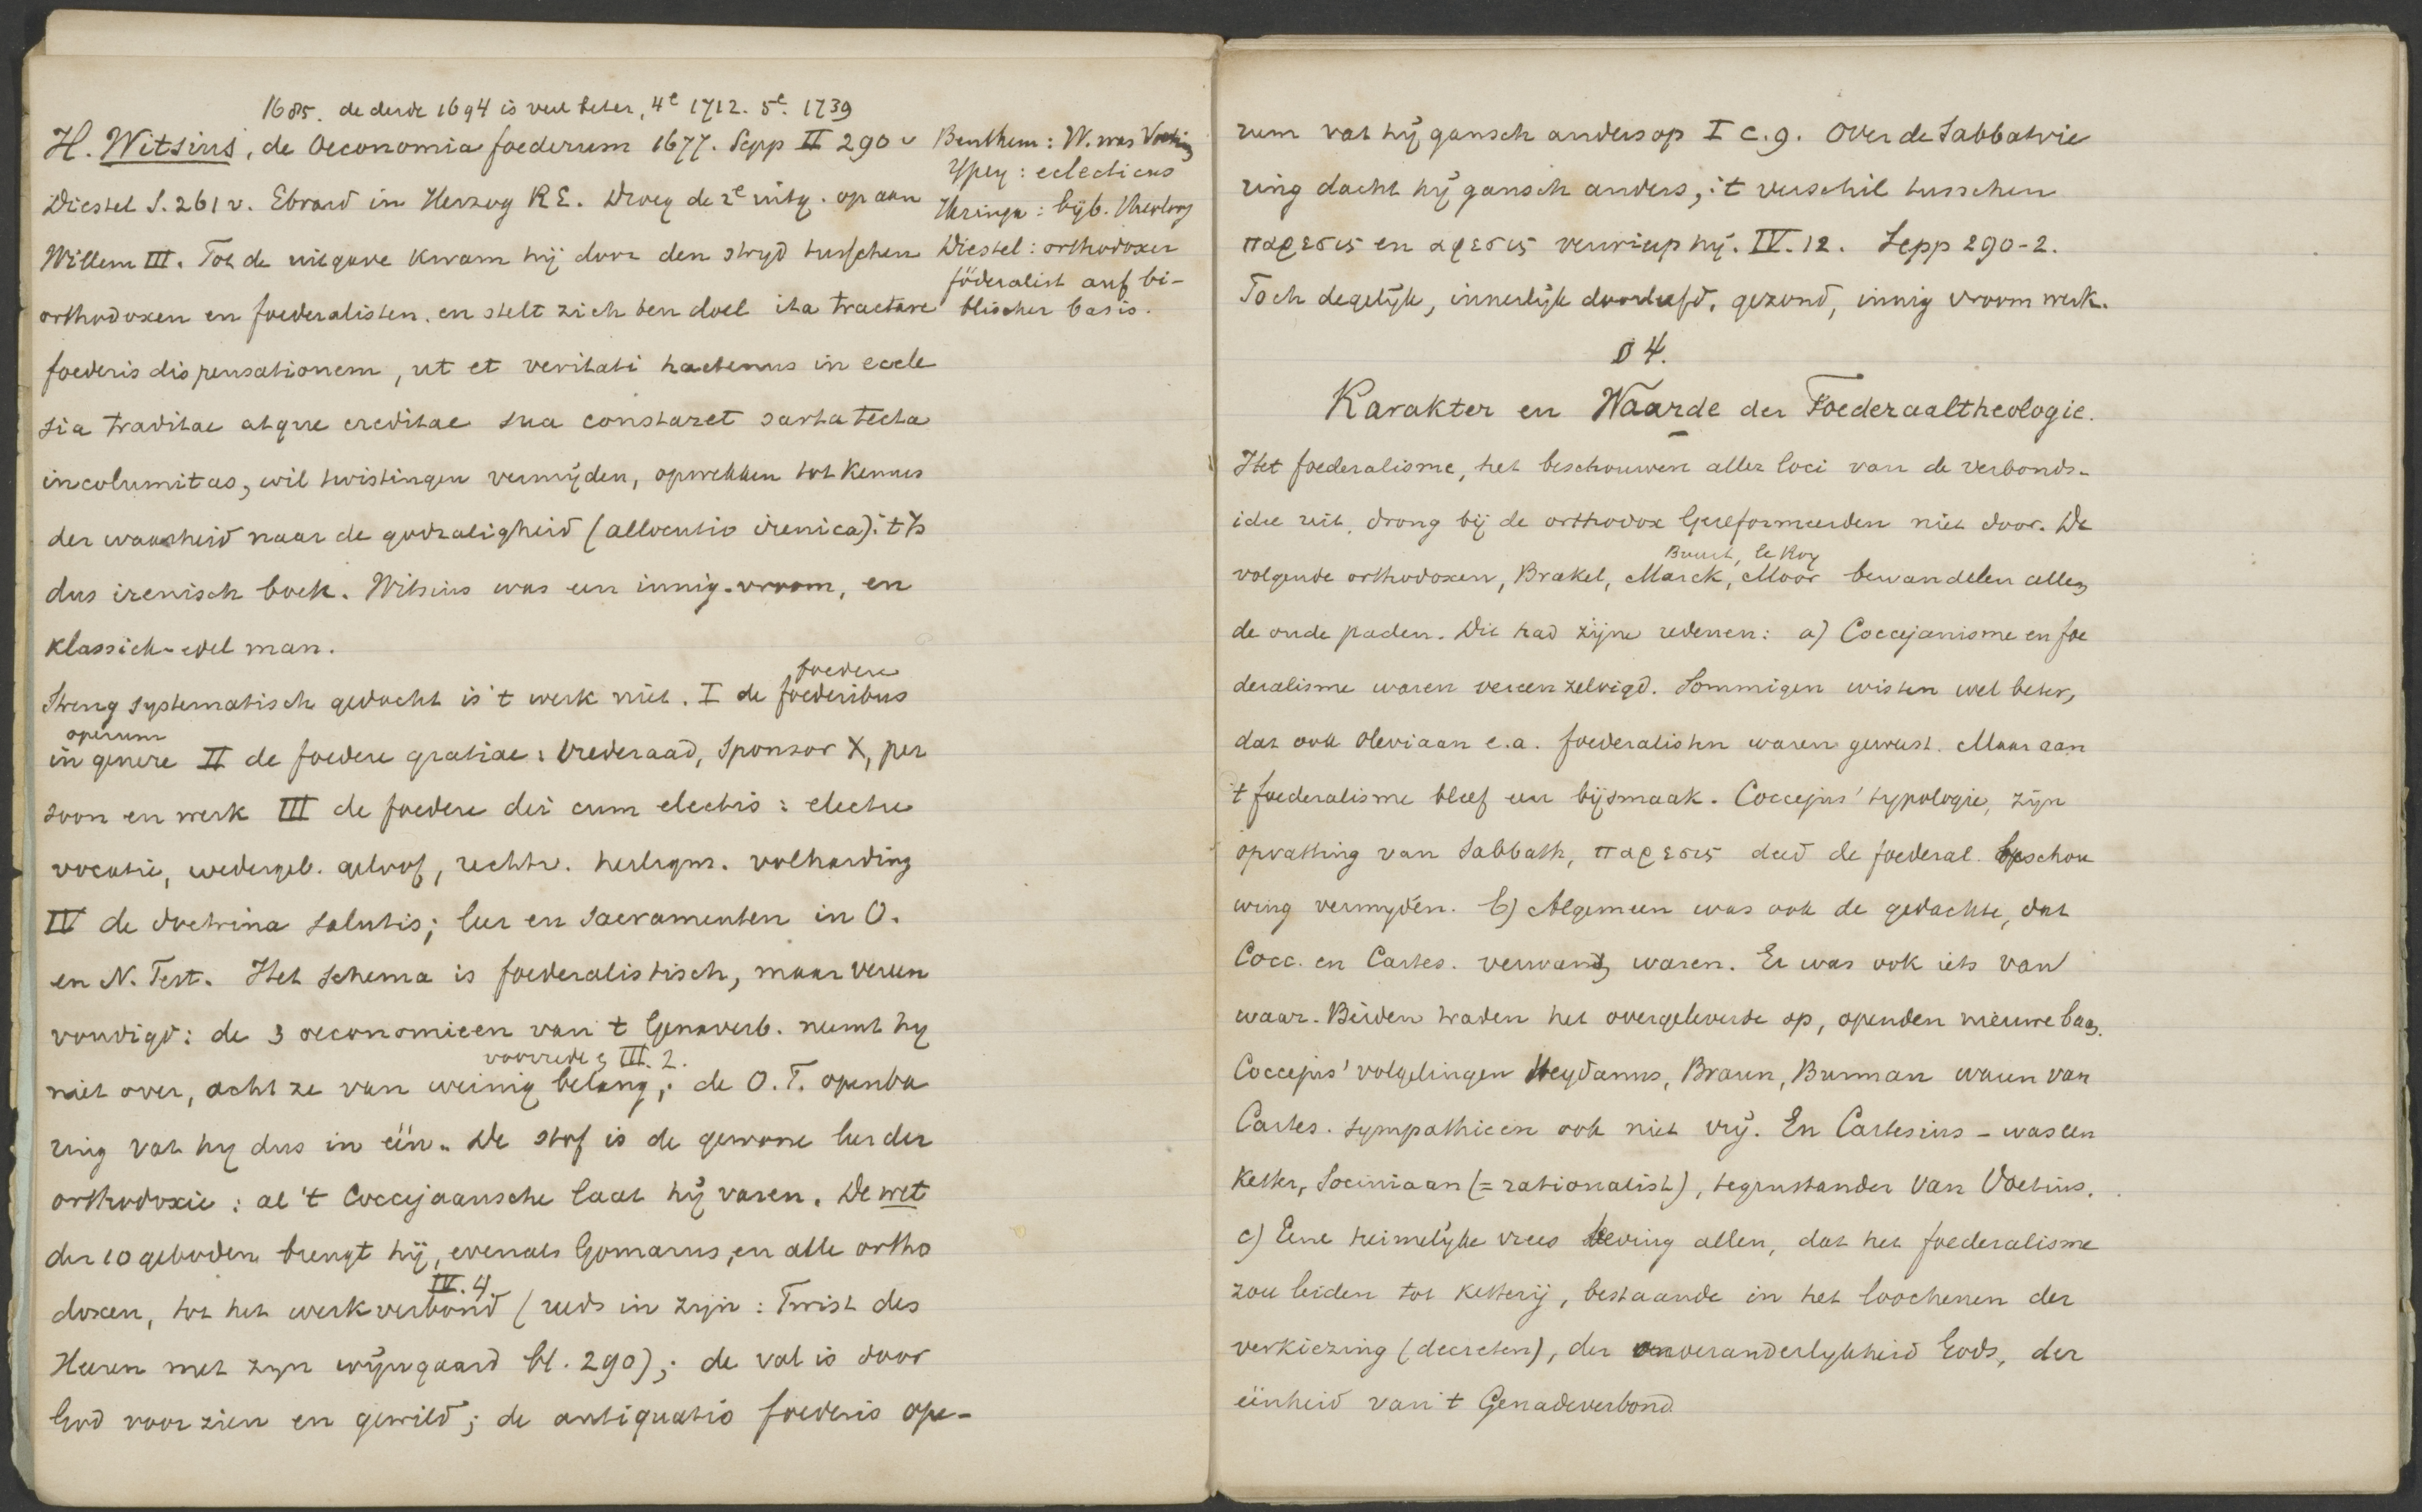 1685. de derde 1694 is veel beter, 4e 1712. 5e. 1739
H. Witsius, de Oeconomia foederum 1677. Sepp II 290 v
Diestel S. 261 v. Ebrard in Herzog RE. Droeg de 2e uitg. op aan
Willem III. Tot de uitgave kwam hij door den stryd tusschen
orthodoxen en foederalisten. en stelt zich ten doel ita tractare
foederis dispensationem, ut et veritati hactenus in eccle
sia traditae atque creditae sua constaret sarta tecta
incolumitas, wil twistingen vermijden, opwekken tot kennis
der waarheid naar de godzaligheid (allocutio irenica): 't is
dus irenisch boek. Witsius was een innig-vroom, en
klassiek-edel man.
foedere
Streng systematisch gedacht is 't werk niet. I de foederibus
operum
in genere II de foedere gratiae: Vrederaad, Sponsor X, per
soon en werk III de foedere dei cum electis: electie
vocatie, wedergeb. geloof, rechtv. heiligm. volharding
IV de doctrina salutis; leer en Sacramenten in O.
en N. Test. Het schema is foederalistisch, maar vereen
voudigd: de 3 oeconomieen van 't Genaverb. neemt hy
voorrede § III. 2.
niet over, acht ze van weinig belang; de O. T. openba
ring vat hy dus in één. De stof is de gewone leer der
orthodoxie: al 't Coccejaansche laat hij varen. De wet
der 10 geboden brengt hij, evenals Gomarus, en alle ortho
IV. 4
doxen, tot het werkverbond (reeds in zijn: Twist des
Heeren met zyn wijngaard bl. 290); de val is door
God voorzien en gewild; de antiquatio foederis ope-
Benthem: W. was
Ypey: eclecticus
Heringa: bijb. theoloog
Diestel: orthodoxer
föderalist auf bi-
blischer basis.
rum vat hij gansch anders op I c. 9. Over de Sabbatvie
ring dacht hij gansch anders, 't verschil tusschen
παρεσις en αφεσις verwierp hij. IV. 12. Sepp 290-2.
Toch degelijk, innerlijk doorleefd, gezond, innig vroom werk.
§ 4.
Karakter en Waarde der Foederaaltheologie.
Het foederalisme, het beschouwen aller loci van de verbonds-
idee uit, drong bij de orthodox Gereformeerden niet door. De
Buurt, le Roy
volgende orthodoxen, Brakel, Marck, Moor bewandelen allen
de oude paden. Dit had zijne redenen: a) Coccejanisme en foe
deralisme waren vereenzelvigd. Sommigen wisten wel beter,
dat ook Oleviaan e.a. foederalisten waren geweest. Maar aan
't foederalisme bleef een bijsmaak. Coccejus' typologie, zijn
opvatting van Sabbath, παρεσις deed de foederal. beschou
wing vermyden. b) Algemeen was ook de gedachte, dat
Cocc. en Cartes. verwant waren. Er was ook iets van
waar. Beiden traden het overgeleverde op, openden nieuwe baan.
Coccejus' volgelingen Heydanus, Braun, Burman waren van
Cartes. sympathieen ook niet vrij. En Cartesius - was een
Ketter, Sociniaan (= rationalist), tegenstander van Voetius.
c) Eene heimelijke vrees beving allen, dat het foederalisme
zou leiden tot Ketterij, bestaande in het loochenen der
verkiezing (decreten), der onveranderlykheid Gods, der
éénheid van 't Genadeverbond